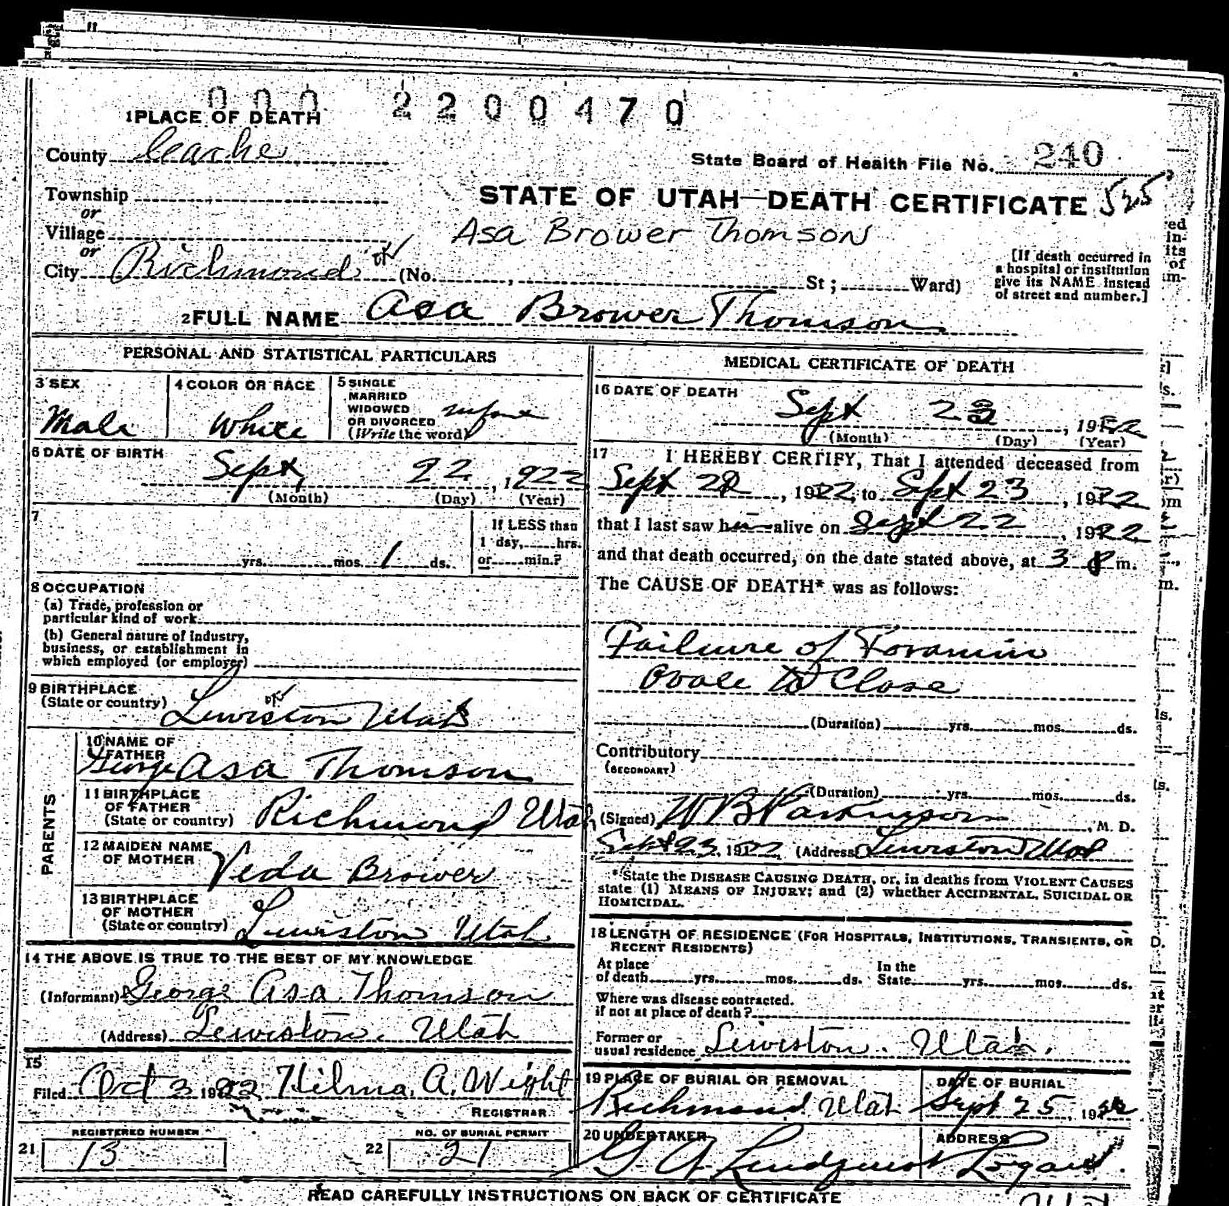 000 2200470
1 PLACE OF DEATH
County Cache
State Board of Health File No. 240
Township
or
Village
or
City Richmond (No. St; Ward)
STATE OF UTAH—DEATH CERTIFICATE 525
Asa Brower Thomson
[If death occurred in
a hospital or institution
give its NAME instead
of street and number.]
2 FULL NAME Asa Brower Thomson
PERSONAL AND STATISTICAL PARTICULARS
3 SEX
Male
4 COLOR OR RACE
White
5 SINGLE
MARRIED
WIDOWED
OR DIVORCED
(Write the word)
infant
6 DATE OF BIRTH
Sept 22, 1922
(Month) (Day) (Year)
7
yrs. mos. 1 ds.
If LESS than
1 day, hrs.
or min.?
8 OCCUPATION
(a) Trade, profession or
particular kind of work
(b) General nature of industry,
business, or establishment in
which employed (or employer)
9 BIRTHPLACE
(State or country) Lewiston Utah
PARENTS
10 NAME OF
FATHER
George Asa Thomson
11 BIRTHPLACE
OF FATHER
(State or country) Richmond Utah
12 MAIDEN NAME
OF MOTHER Veda Brower
13 BIRTHPLACE
OF MOTHER
(State or country) Lewiston Utah
14 THE ABOVE IS TRUE TO THE BEST OF MY KNOWLEDGE
(Informant) George Asa Thomson
(Address) Lewiston, Utah
15
Filed Oct 3 1922 Hilma A. Wight
REGISTRAR
REGISTERED NUMBER
21 13
NO. OF BURIAL PERMIT
22 21
MEDICAL CERTIFICATE OF DEATH
16 DATE OF DEATH
Sept 23, 1922
(Month) (Day) (Year)
17 I HEREBY CERTIFY, That I attended deceased from
Sept 22, 1922, to Sept 23, 1922
that I last saw h alive on Sept 22, 1922
and that death occurred, on the date stated above, at 3 m.
The CAUSE OF DEATH* was as follows:
Failure of Foramin
Ovale to Close
(Duration) yrs. mos. ds.
Contributory
(SECONDARY)
(Duration) yrs. mos. ds.
(Signed) W B Parkinson, M. D.
Sept 23, 1922 (Address) Lewiston Utah
*State the DISEASE CAUSING DEATH, or, in deaths from VIOLENT CAUSES
state (1) MEANS OF INJURY; and (2) whether ACCIDENTAL, SUICIDAL OR
HOMICIDAL.
18 LENGTH OF RESIDENCE (FOR HOSPITALS, INSTITUTIONS, TRANSIENTS, OR
RECENT RESIDENTS)
At place
of death yrs. mos. ds.
In the
State yrs. mos. ds.
Where was disease contracted.
if not at place of death?
Former or
usual residence Lewiston. Utah.
19 PLACE OF BURIAL OR REMOVAL
Richmond Utah
DATE OF BURIAL
Sept 25, 1922
20 UNDERTAKER
G W Lindquist
ADDRESS
Logan.
READ CAREFULLY INSTRUCTIONS ON BACK OF CERTIFICATE